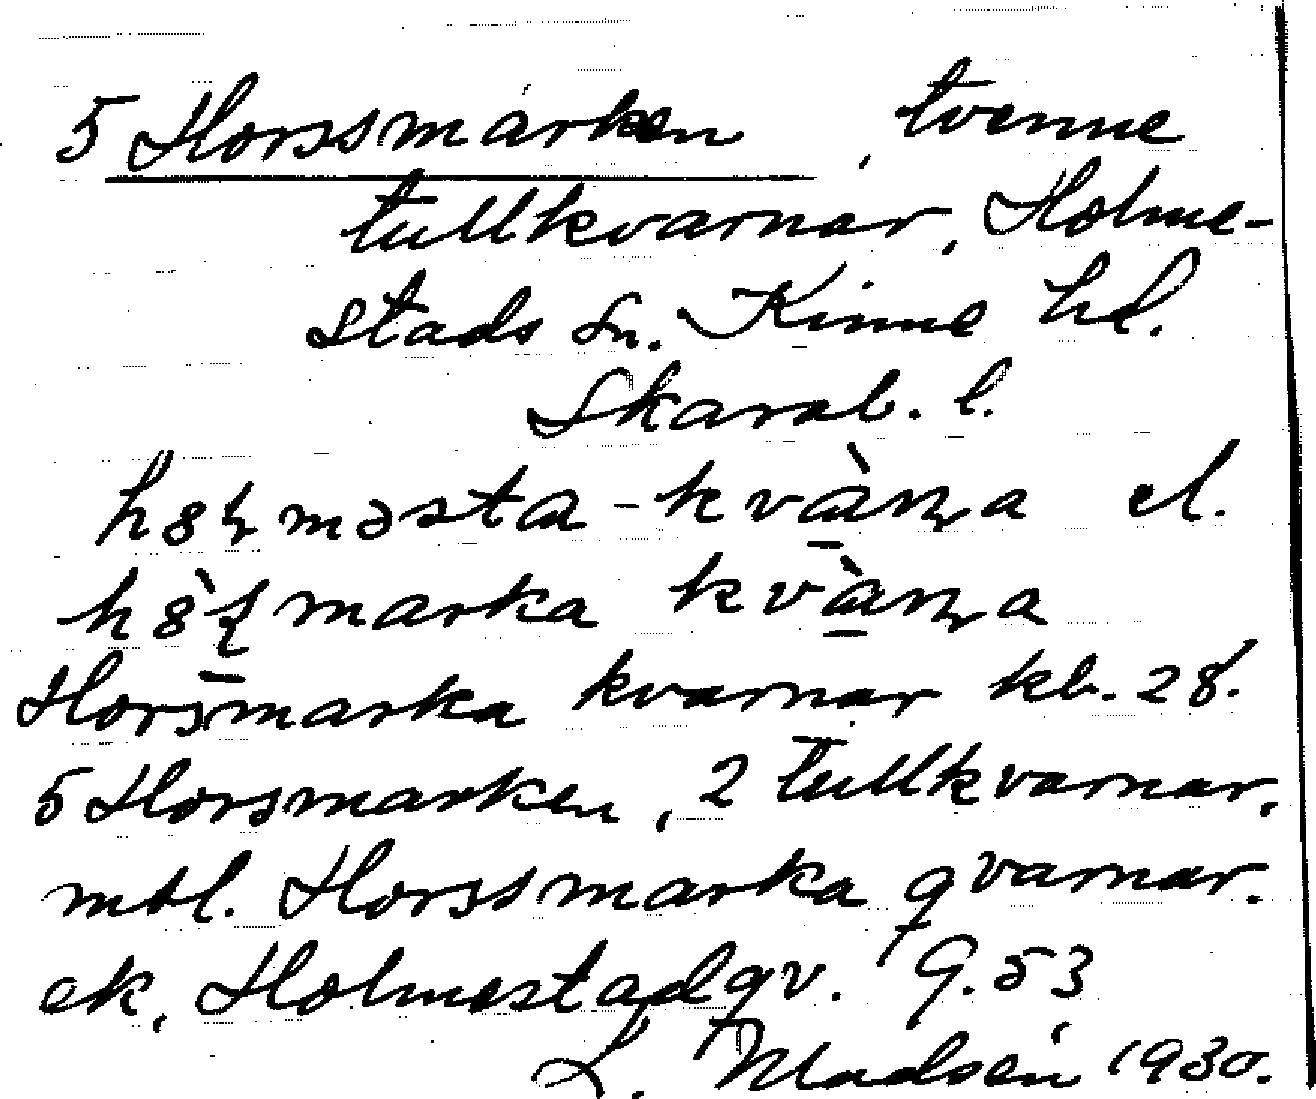 5 Horssmarken, tvenne
tullkvarnar, Holme-
stads sn. Kinne hd.
Skarab. l.
el.
marka
Horsmarka kvarnar kb. 28.
5 Horsmarken, 2 tullkvarnar,
mtl. Horssmarka qvarnar.
ek, Holmestad qv. 9.53
L. Madsén 1930.